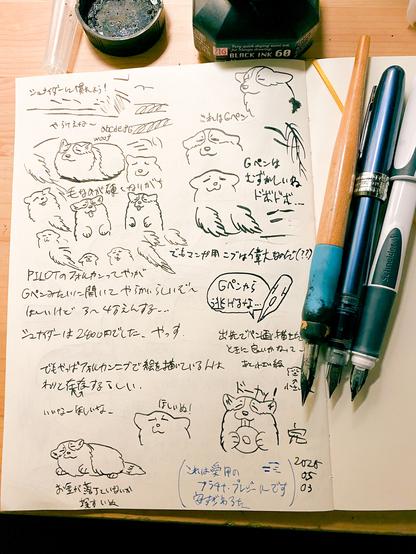 BLACK INK 60
シュナイダーに慣れよう！
やらけえね〜
abcdefg
woof
これはGペン
Gペンは
むずかしいね
ドボドボ…
でもマンガ用ニブは偉大なんで(??)
PILOTのフォルカンってやつが
Gペンみたいに開いてやわらかいらしいぞ〜
ほしいけど 3〜4万えんする…
シュナイダーは2400円でした。やっす
Gペンから
逃げるな…
出先でペン画描き
ときに良いかなって…
でもやっぱフォルカンニブで絵を描いている人は
わりと存在するらしい
いいな〜ほしいな〜
ほしいぬ!
完
お金が落ちていないか
探すいぬ
これは愛用の
プラチナ・プレジールです
2025
05
03
Schneider